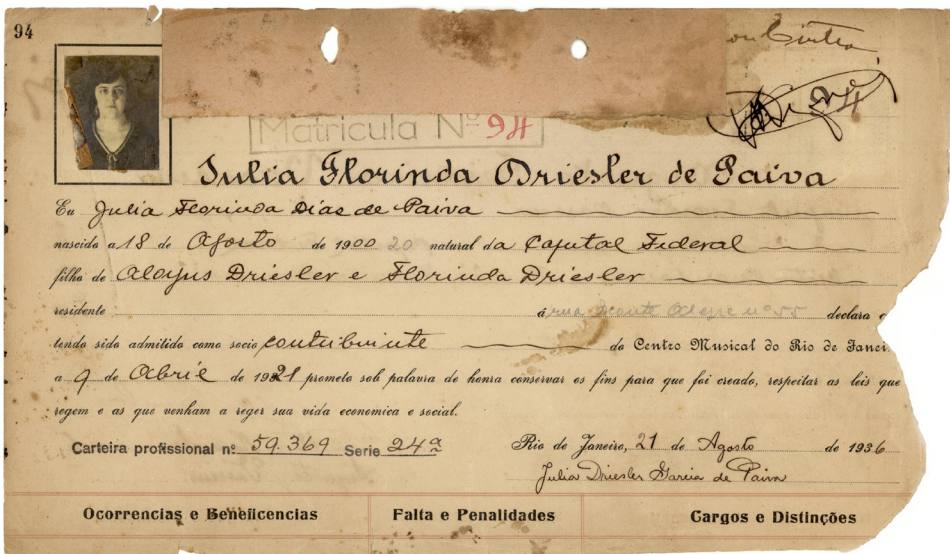 94
Matricula Nº 94
Julia Florinda Driesler de Paiva
Eu Julia Florinda Dias de Paiva
nascido a 18 de Agosto de 1900 20 natural da Capital Federal
filho de Aloyus Driesler e Florinda Driesler
residente á rua Monte Alegre nº 55 declara
tendo sido admitido como socio contribuinte do Centro Musical do Rio de Janei
a 9 de Abril de 1921 prometo sob palavra de honra conservar os fins para que foi creado, respeitar as leis que
regem e as que venham a reger sua vida economica e social.
Carteira profissional nº 59.369 Serie 24ª
Rio de Janeiro, 21 de Agosto de 1936
Julia Driesler Garcia de Paiva
Ocorrencias e Beneficencias
Falta e Penalidades
Cargos e Distinções